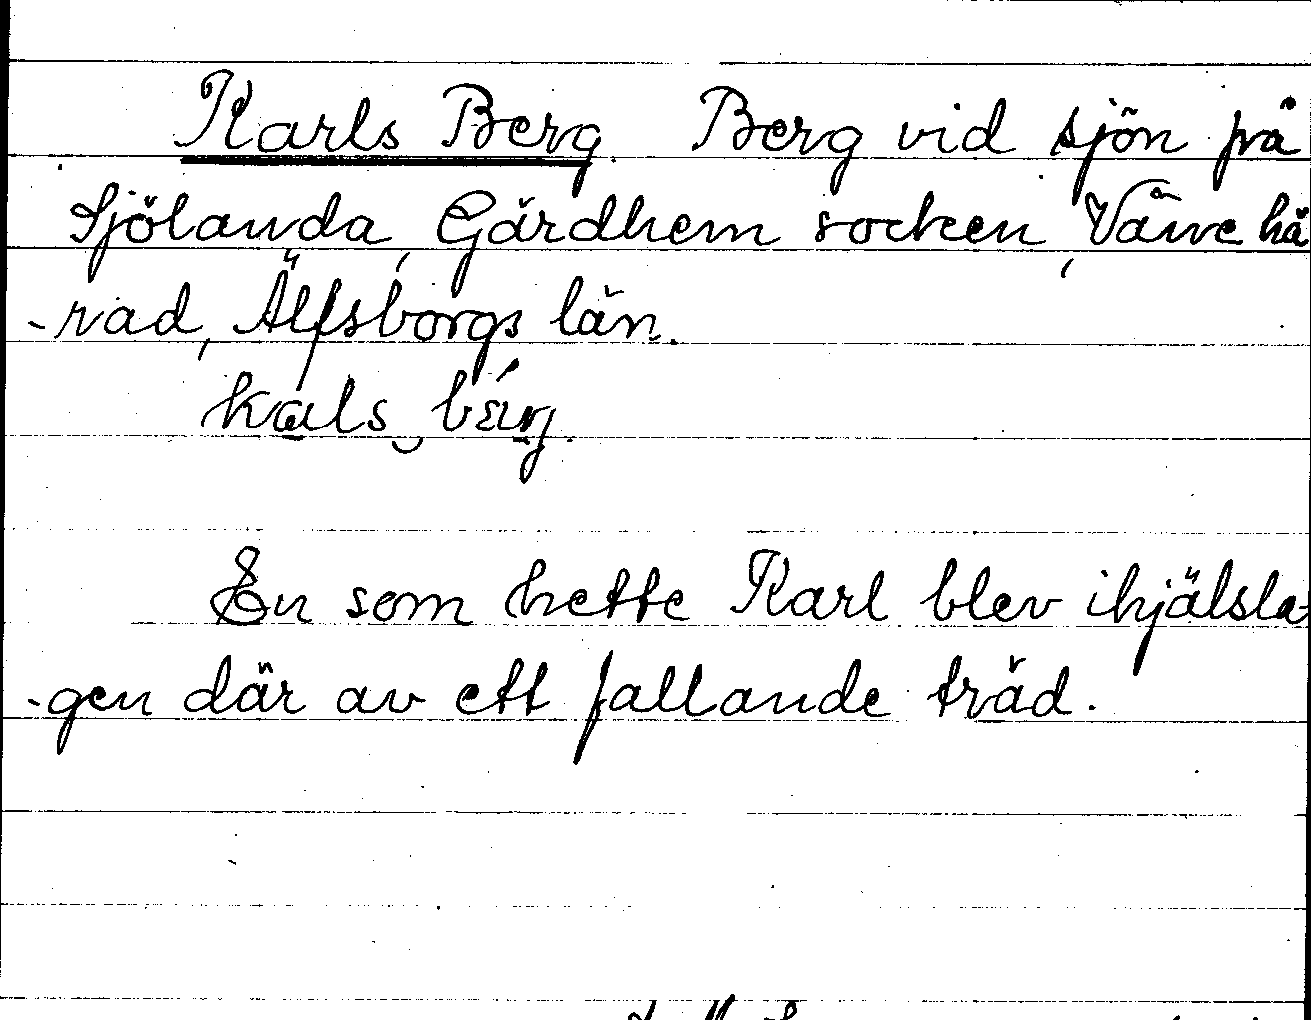 Karls Berg. Berg vid sjön på
Sjölanda, Gärdhem socken, Väne hä
-rad, Älfsborgs län.
En som hette Karl blev ihjälsla-
-gen där av ett fallande träd.